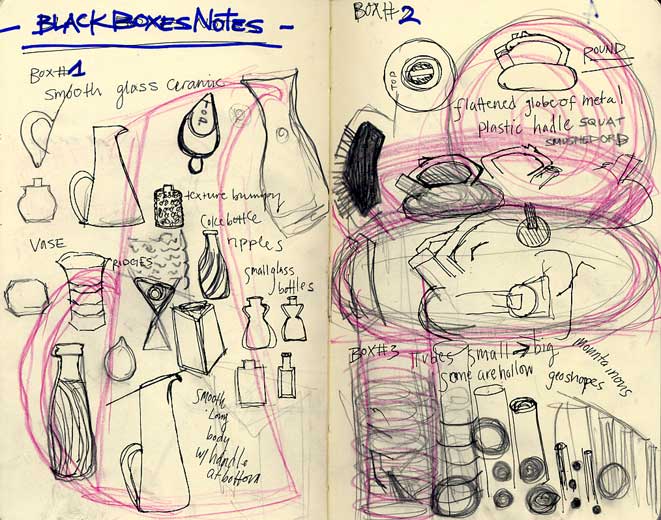 BLACK BOXES NOTES
BOX #1
smooth glass ceramic
TOP
texture bumpy
coke bottle
ripples
VASE
RIDGIES
small glass
bottles
smooth
long
body
w/ handle
at bottom
BOX #2
TOP
ROUND
flattened globe of metal
plastic hadle SQUAT
BOX #3
tubes small → big
some are hollow geo shapes